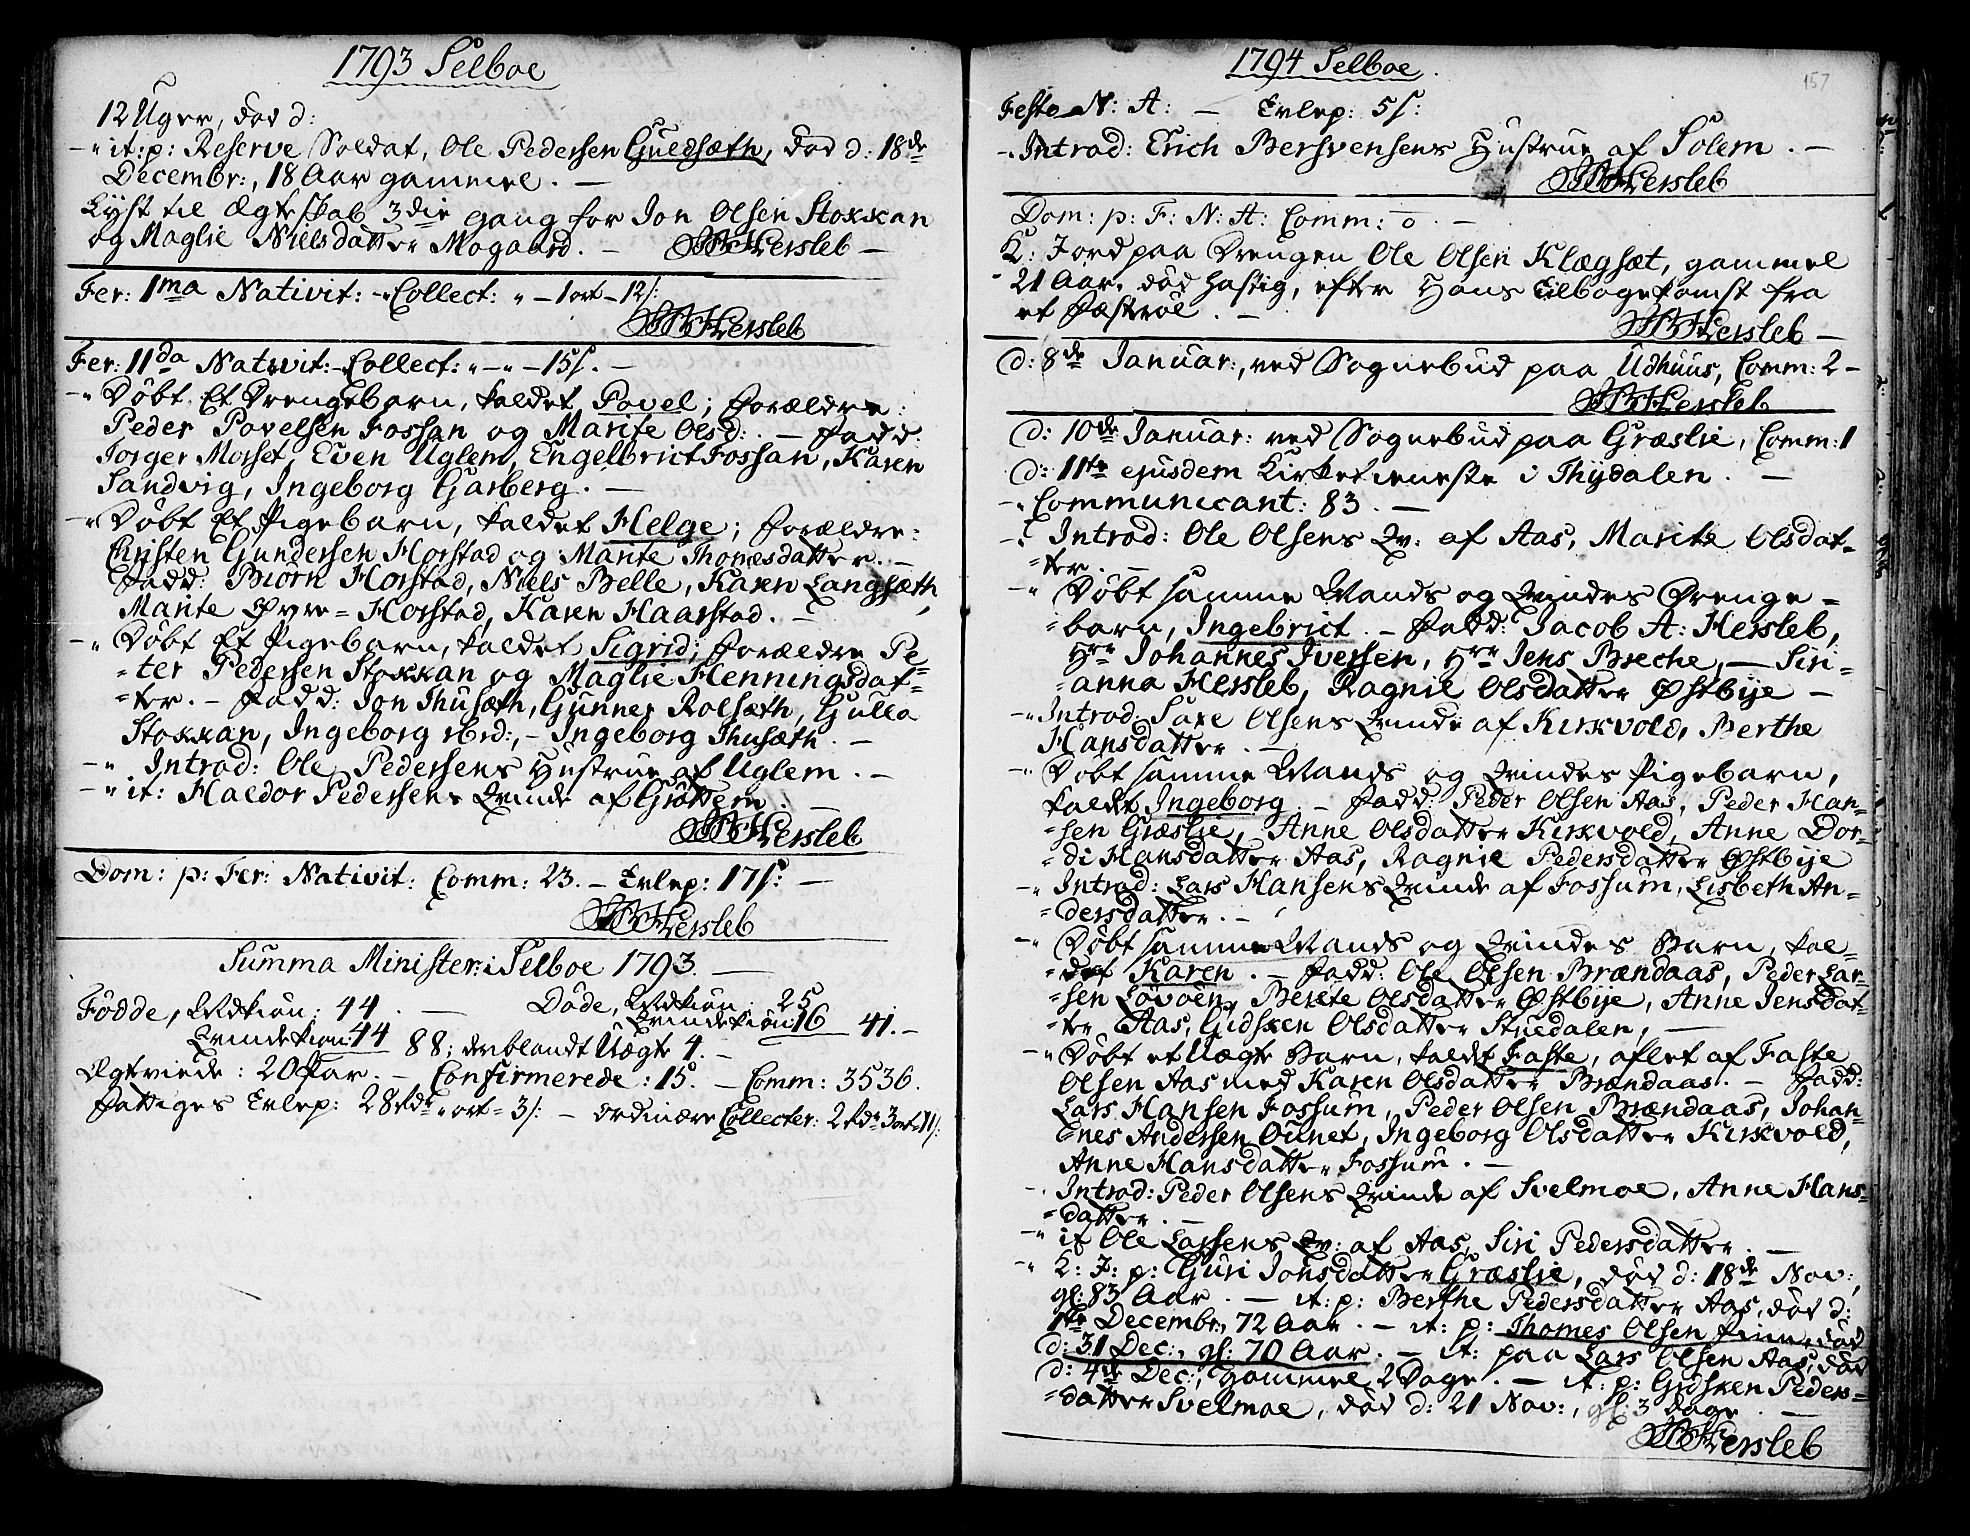 1793 Selboe
12 Uger, död d:
-"it: p: Reserve Soldat, Ole Pedersen Guedsæth, död d: 18de
Decembr:, 18 Aar gammel. —
Lyst til Ægteskab 3die gang for Jon Olsen Stokkan
og Maglie Nielsdatter Mogaard. — Hersleb —
Fer: 1ma Nativit: -"Collect: " — 1 ort — 12/:
Hersleb
Fer: 11da Nativit: -Collect: "—"— 15/. —
-" Döbt Et Drengebarn, kaldet Povel; forældre:
Peder Povelsen Fossan og Marite Olsd: — fadd:
Jorger Morset, Even Uglem, Engelbrict Fossan, Karen
Sandvig, Ingeborg Garberg. —
-" Döbt Et Pigebarn, kaldet Helge; forældre:
Christen Gundersen Horstad og Marite Thomesdatter. —
fadd: Biörn Horstad, Niels Belle, Karen Langsæth,
Marite Horstad, Karen Haarstad. —
-" Döbt Et Pigebarn, kaldet Sigrid; forældre Pe-
-ter Pedersen Stokkan og Maglie Henningsdat-
-ter. — fadd: Jon Thusæth, Gunner Rolsæth, Gulla
Stokkan, Ingeborg ibid:, - Ingeborg Thusæth. —
-" Introd: Ole Pedersens Hustrue af Uglem. —
-" it: Haldor Pedersens Qvinde af Gröttem. —
Hersleb
Dom: p: Fer: Nativit: Comm: 23. — Erlep: 17/: —
Hersleb
Summa Minister: i Selboe 1793. —
Födde, Mdkiön: 44. — Döde, Mdkiön: 25
Qvindekiön: 44 88; deriblandt Uægte 4. — Qvindekiön 16 41. —
Ægtviede: 20 Par. — Confirmerede: 15. — Comm: 3536.
Fattiges Erlep: 28 rdr " ort = 3/: — ordinære Collecter: 2 rdr 3 ort 11/:
1794 Selboe.
157
Festo N: A: — Erlep: 5/:
-. Introd: Erich Bersvensens Hustrue af Solem. —
Hersleb
Dom: p: F: N: A: Comm: o. —
K: Jord paa Drengen Ole Olsen Klægsæt, gammel
21 Aar, död hastig, efter Hans tilbagekomst fra
et
Hersleb —
d: 8de Januar:, ved Sognebud paa Udhuus, Comm: 2 —
Hersleb
d: 10de Januar: ved Sognebud paa Græslie, Comm: 1
d: 11te ejusdem Kirketieneste i Thydalen. —
-. Communicant: 83. —
-. Introd: Ole Olsens Qv: af Aas, Marite Olsdat-
-ter. —
-" Döbt samme Mands og Qvindes Drenge-
-barn, Ingebrict. — fadd: Jacob A: Hersleb,
Hrr Johannes Iversen, Hrr Jens Breche, — Siri-
-anna Hersleb, Ragnil Olsdatter Østbye —
-" Introd: Saxe Olsens Qvinde af Kirkvold, Berthe
Hansdatter. —
-" Döbt samme Mands og Qvindes Pigebarn,
kaldt Ingeborg. — fadd: Peder Olsen Aas, Peder Han-
-sen Græslie, Anne Olsdatter Kirkvold, Anne Dor-
-di Hansdatter Aas, Ragnil Pedersdatter Østbye
-" Introd: Lars Hansens Qvinde af Fossum, Lisbeth An-
-dersdatter. —
-" Döbt samme Mands og Qvindes Barn, kal-
-det Karen. — fadd: Ole Olsen Brændaas, Peder Lar-
-sen Lövöen, Berete Olsdatter Østbye, Anne Jensdat-
-ter Aas, Gidsken Olsdatter Stuedalen, —
-" Döbt et Uægte Barn, kaldet Faste, aflet af Faste
Olsen Aas med Karen Olsdatter Brændaas. — fadd:
Lars Hansen Fossum, Peder Olsen Brændaas, Johan-
-nes Andersen Ounet, Ingeborg Olsdatter Kirkvold,
Anne Hansdatter Fossum. —
-. Introd: Peder Olsens Qvinde af Svelmoe, Anne Hans-
-datter. —
-" it Ole Larsens Qv: af Aas, Siri Pedersdatter. —
-" K: J: p: Guri Jonsdatter Græslie, död d: 18de Nov:,
gl: 83 Aar. — it: p: Berthe Pedersdatter Aas, död d:
1te Decembr, 72 Aar. — it: p: Thomes Olsen Finn, död
d: 31 Dec:, gl: 70 Aar. — it: paa Lars Olsen Aas, död
d: 4de Dec:, gammel 2 Dage. — it: p: Gidsken Peders-
-datter Svelmoe, död d: 21 Nov:, gl: 3 Dage. —
Hersleb